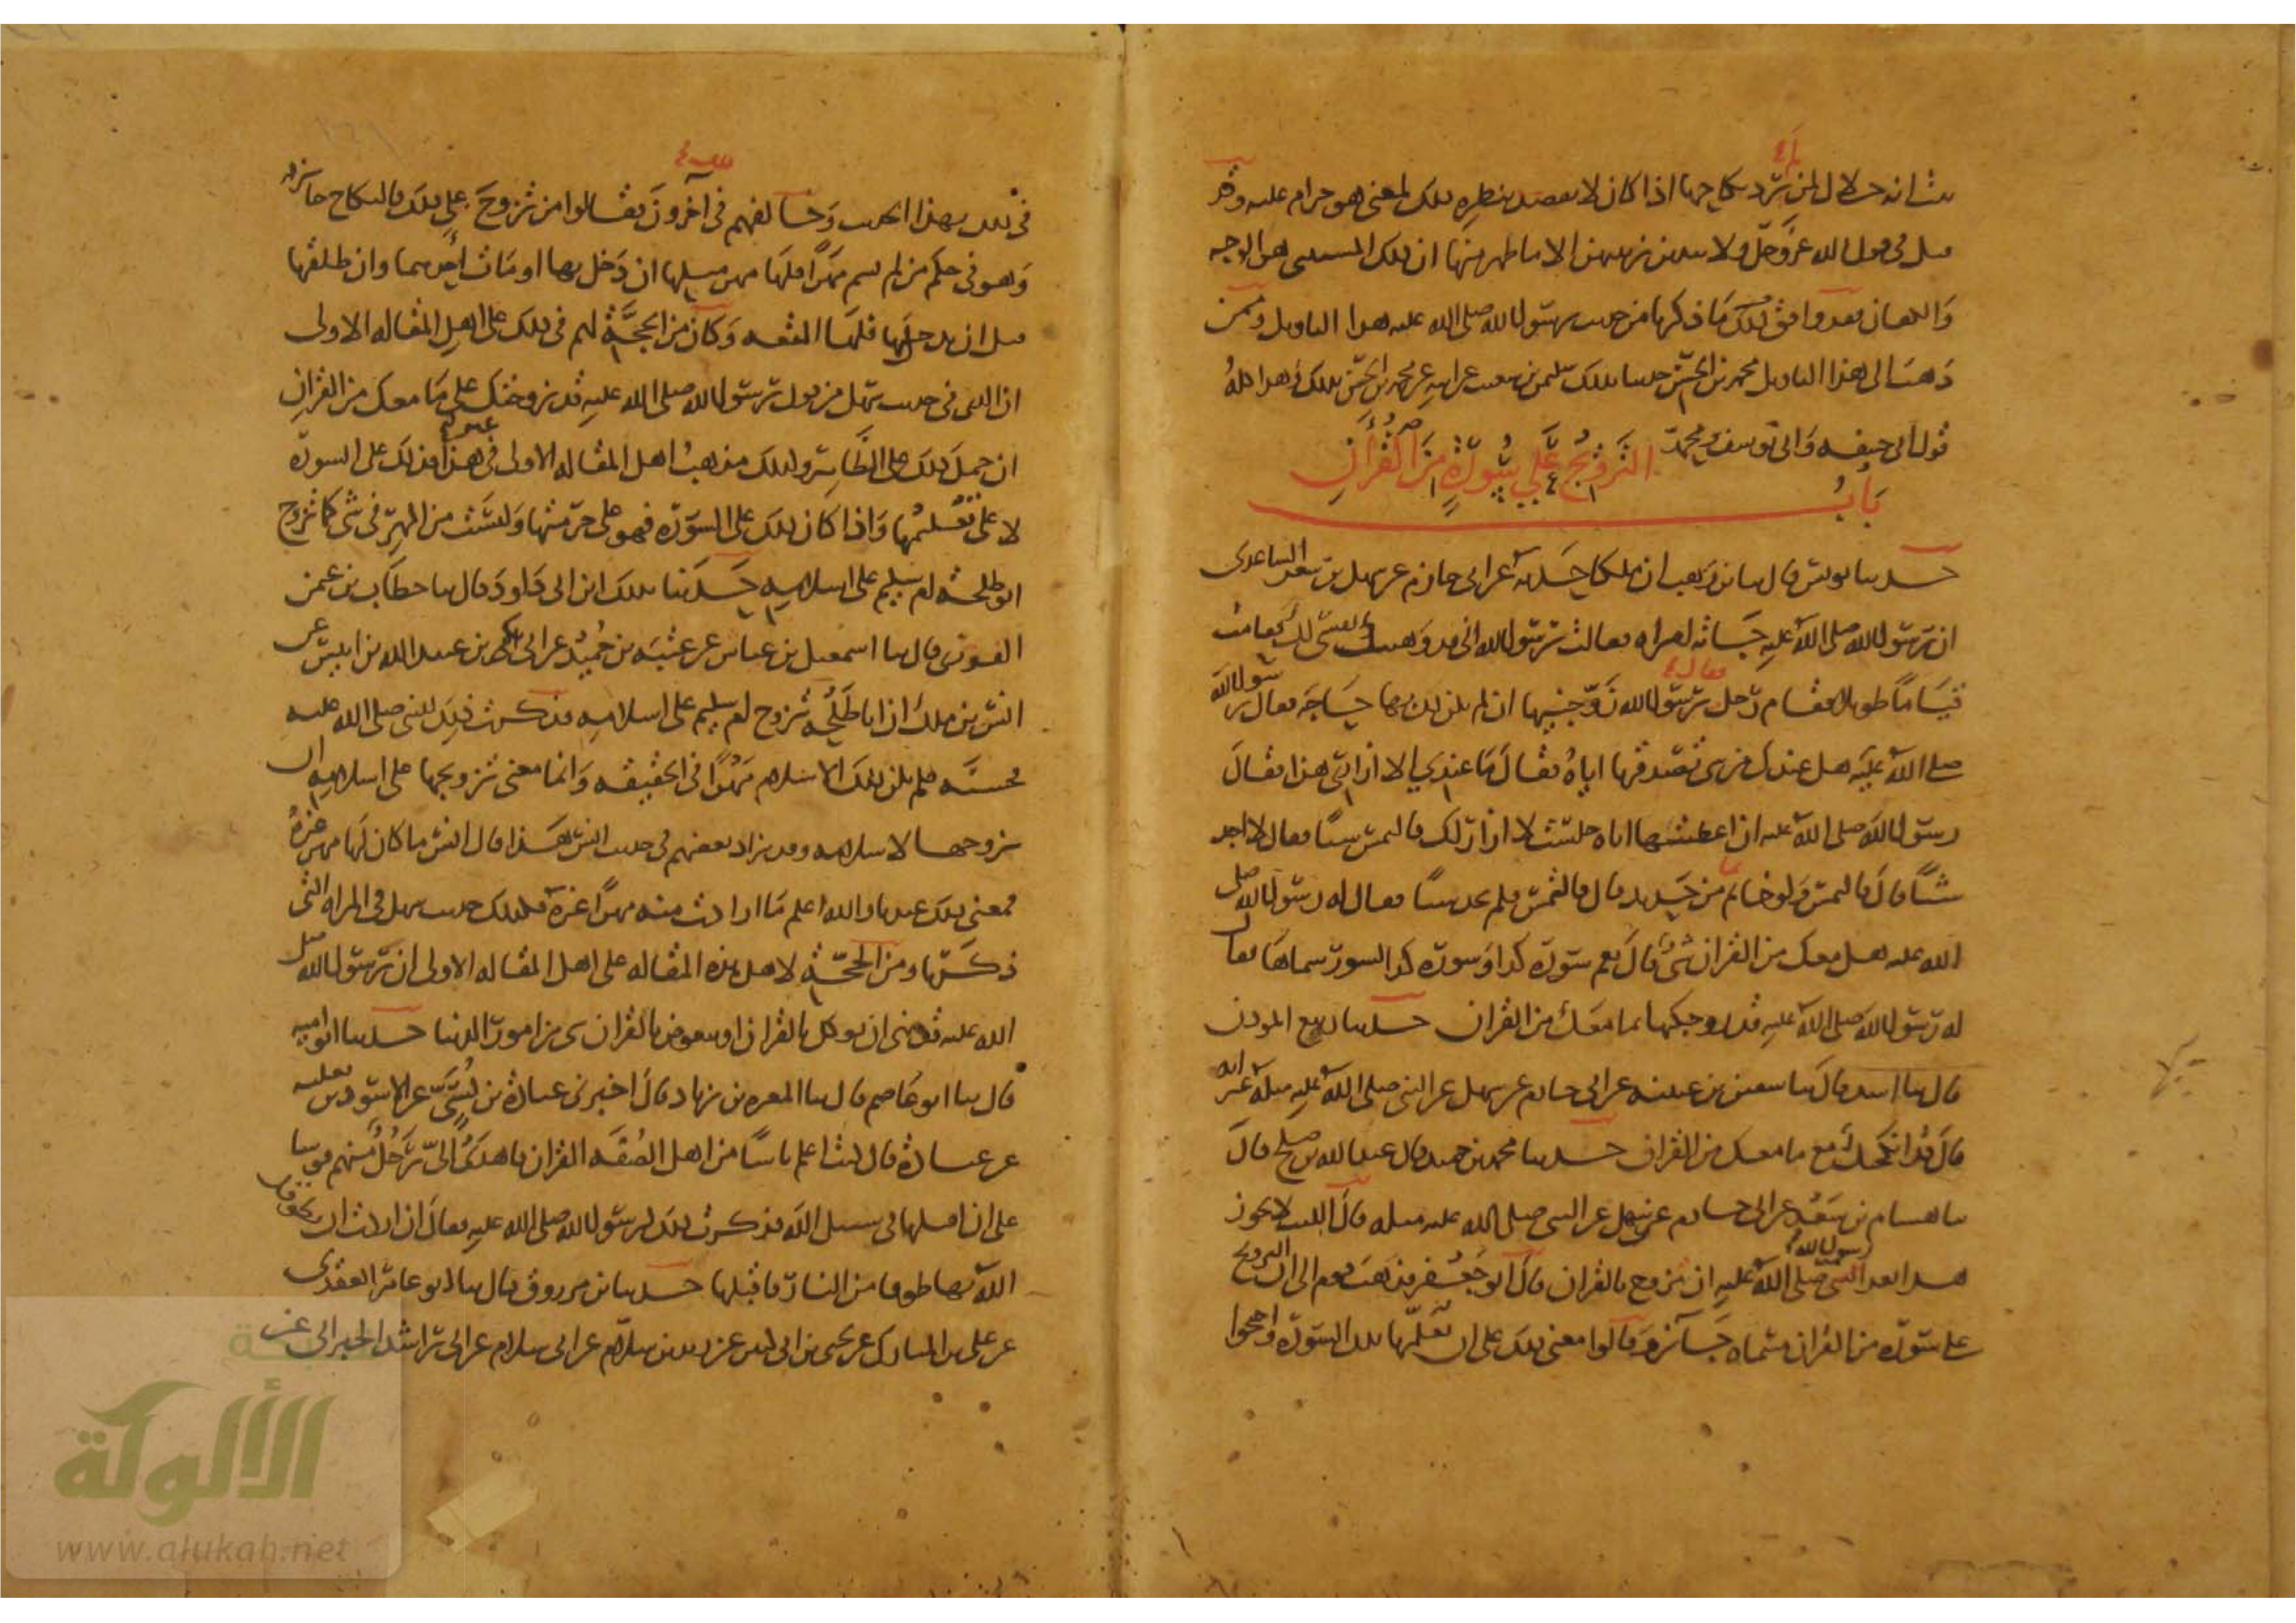 ثبت انه حلال لمن يريد نكاحها اذا كان لا يقصد بنظره ذلك لمعنى هو حرام عليه وقد
قيل في قول الله عز وجل ولا يبدين زينتهن الا ما ظهر منها ان ذلك المستثنى هو الوجه
والكفان فقد وافق ذلك ما ذكرنا من حديث رسول الله صلى الله عليه هذا التاويل وممن
ذهب الى هذا التاويل محمد بن الحسن حدثنا بذلك سليمن بن شعيب عن ابيه عن محمد بن الحسن بذلك وهذا كله
قول ابي حنيفه وابي يوسف ومحمد
باب التزويج على سورة من القران
حدثنا يونس قال ثنا بن وهب ان ملكا حدثه عن ابي حازم عن سهل بن سعد الساعدي
ان رسول الله صلى الله عليه جاءته امراه فقالت يرسول الله اني قد وهبت نفسي لك فقامت
قياما طويلا فقام رجل فقال يرسول الله زوجنيها ان لم يكن لك بها حاجة فقال رسول الله
صلى الله عليه هل عندك من شي تصدقها اياه فقال ما عندي الا ازاري هذا فقال
رسول الله صلى الله عليه ان اعطيتها اياه جلست لا ازار لك فالتمس شيا فقال لا اجد
شيا قال فالتمس ولو خاتما من حديد قال فالتمس فلم يجد شيا فقال له رسول الله صلى
الله عليه هل معك من القران شي قال نعم سورة كذا وسورة كذا لسور سماها فقال
له رسول الله صلى الله عليه قد زوجتكها بما معك من القران حدثنا ربيع المؤذن
قال ثنا اسد قال ثنا سفين بن عيينه عن ابي حازم عن سهل عن النبي صلى الله عليه مثله غير انه
قال قد انكحتك مع ما معك من القران حدثنا محمد بن حميد قال عبد الله بن صلح قال
ثنا هشام بن سعد عن ابي حازم عن سهل عن النبي صلى الله عليه مثله قال الليث لا يجوز
هذا بعد رسول الله صلى الله عليه ان يزوج بالقران قال ابو جعفر فذهب قوم الى ان التزويج
على سورة من القران مسماه جائز وقالوا معنى ذلك على ان يعلمها تلك السورة واحتجوا
في ذلك بهذا الحديث وخالفهم في ذلك آخرون فقالوا من تزوج على ذلك فالنكاح جائز
وهو في حكم من لم يسم مهرا فلها مهر مثلها ان دخل بها او مات احدهما وان طلقها
قبل ان يدخل بها فلها المتعه وكان من الحجة لهم في ذلك على اهل المقاله الاولى
ان الذي في حديث سهل من قول رسول الله صلى الله عليه قد زوجتك على ما معك من القران
ان حمل ذلك على الظاهر وكذلك مذهب اهل المقاله الاولى في غير هذا فذلك على السورة
لا على تعليمها واذا كان ذلك على السورة فهو على حرمتها وليست من المهر في شي كما تزوج
ابو طلحة ام سليم على اسلامه حدثنا بذلك ابن ابي داود قال ثنا خطاب بن عثمن
الفوزي قال ثنا اسمعيل بن عياش عن عتبه بن حميد عن ابي بكر بن عبيد الله بن انس عن
انس بن ملك ان ابا طلحه تزوج ام سليم على اسلامه فذكرت ذلك للنبي صلى الله عليه
فحسنه فلم يكن ذلك الاسلام مهرا في الحقيقه وانما معنى تزويجها على اسلامه اي
تزوجها لاسلامه وقد زاد بعضهم في حديث انس هذا قال انس ما كان لها مهر غيره
فمعنى ذلك عندنا والله اعلم ما ارادت منه مهرا غيره فكذلك حديث سهل في المراه التي
ذكرنا ومن الحجة لاهل هذه المقاله على اهل المقاله الاولى ان رسول الله صلى
الله عليه قد نهى ان يوكل بالقران او يتعوض بالقران شي من امور الدنيا حدثنا ابو اميه
قال ثنا ابو عاصم قال ثنا المغيره بن زياد قال اخبرني عبادة بن نسي عن الاسود بن ثعلبه
عن عبادة قال كنت اعلم ناسا من اهل الصفه القران فاهدى الى رجل منهم قوسا
على ان اقبلها في سبيل الله فذكرت ذلك لرسول الله صلى الله عليه فقال ان اردت ان يطوقك
الله بها طوقا من النار فاقبلها حدثنا بن مرزوق قال ثنا ابو عامر العقدي
عن علي بن المبارك عن يحيى بن ابي كثير عن زيد بن سلام عن ابي سلام عن ابي راشد الحبراني عن
الألوكة
www.alukah.net